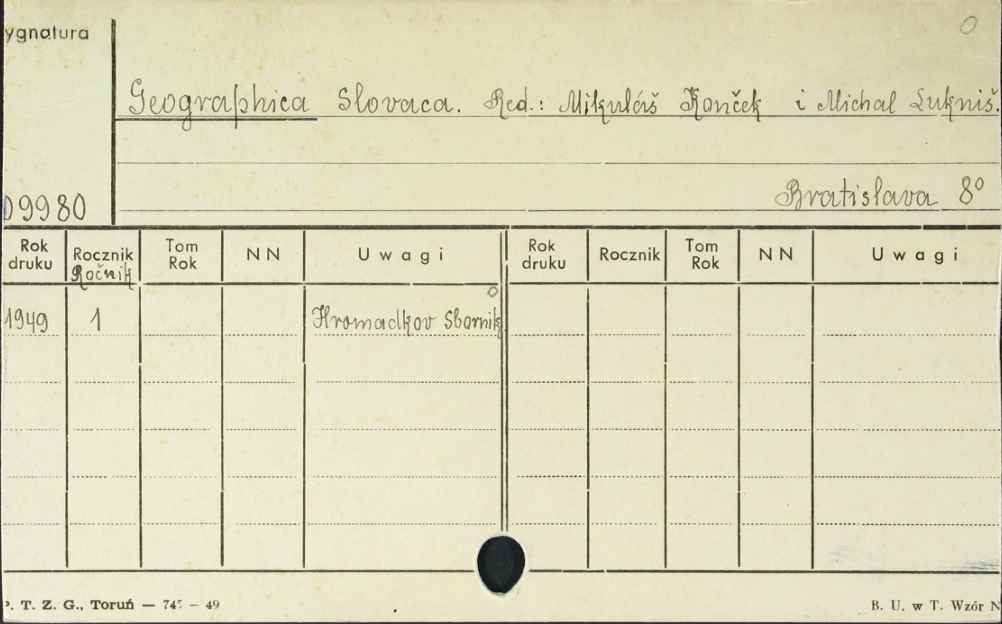 ygnatura
Geographica Slovaca. Red.: Mikuláš Konček i Michal Lukniš.
Bratislava 8°
09980
Rok druku Rocznik Tom Rok NN Uwagi Rok druku Rocznik Tom Rok NN Uwagi
Ročnik
1949 1 Hromadkov Sbornik
. T. Z. G., Toruń — 74 – 49 B. U. w T. Wzór N